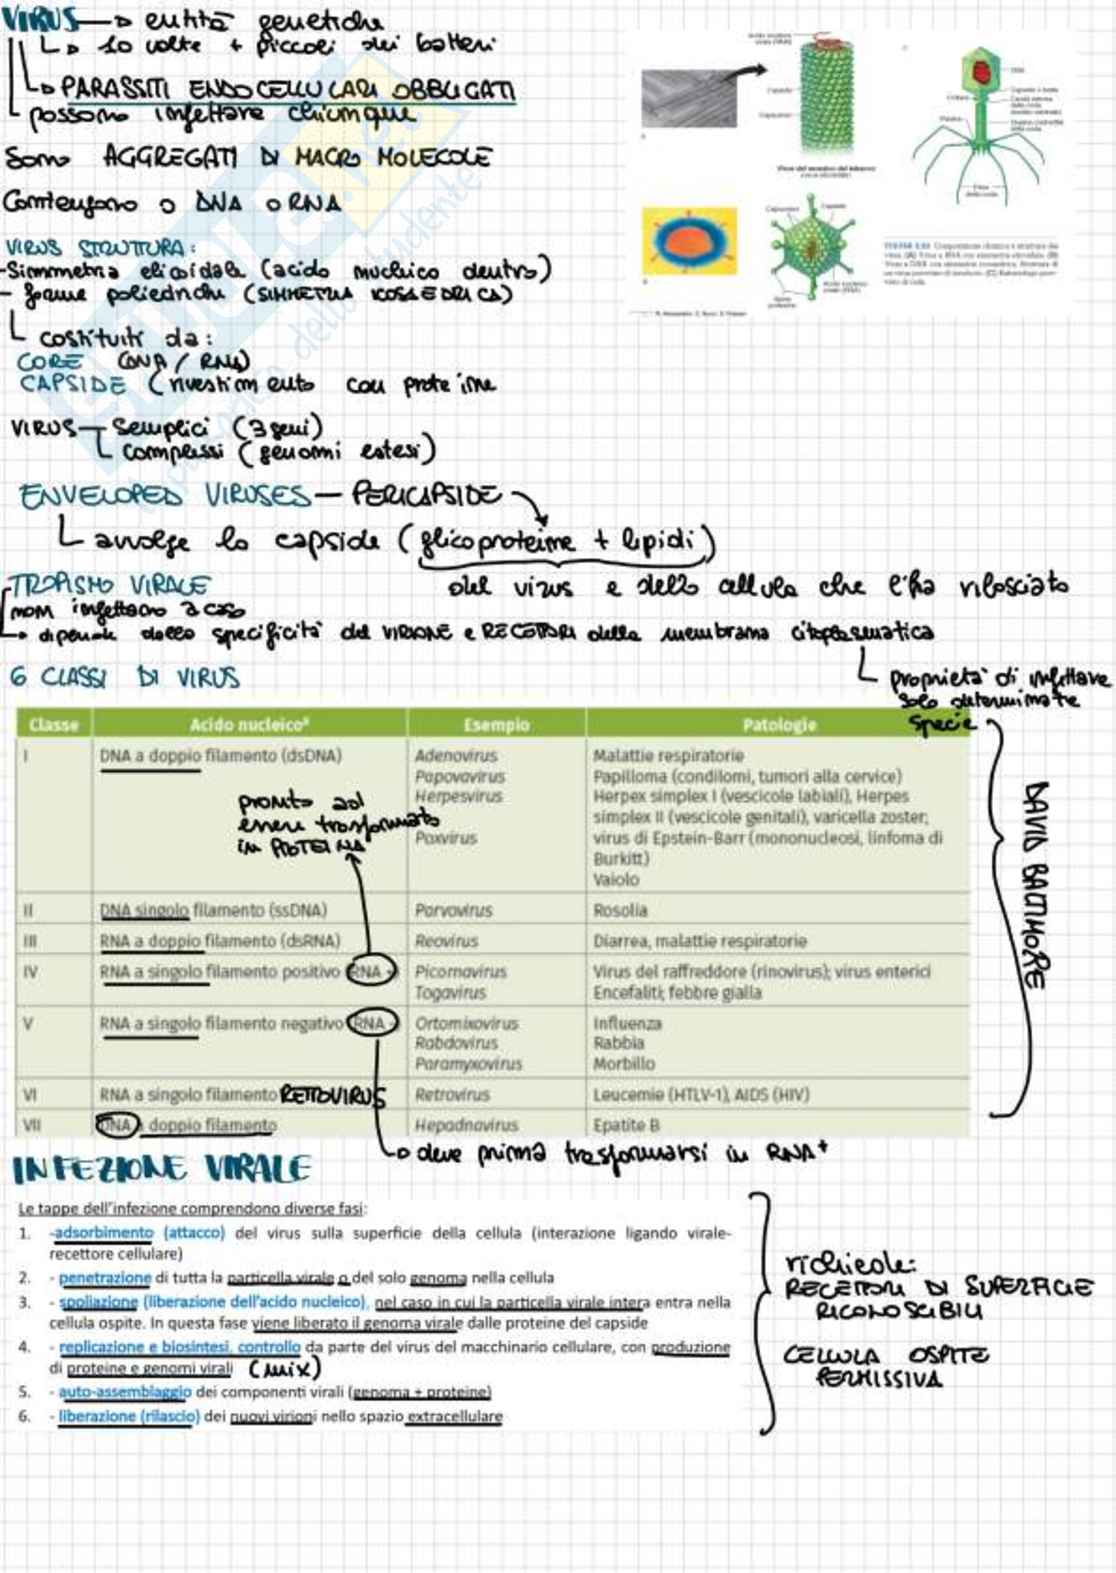 VIRUS → entità genetiche
↳ 10 volte + piccoli dei batteri
↳ PARASSITI ENDOCELLULARI OBBLIGATI
possono infettare chiunque
Sono AGGREGATI DI MACRO MOLECOLE
Contengono o DNA o RNA
VIRUS STRUTTURA:
- Simmetria elicoidale (acido nucleico dentro)
- forme poliedriche (SIMMETRIA ICOSAEDRICA)
costituiti da:
CORE (DNA / RNA)
CAPSIDE (rivestimento con proteine
VIRUS semplici (3 geni)
complessi (genomi estesi)
ENVELOPED VIRUSES - PERICAPSIDE
avvolge lo capside (glicoproteine + lipidi)
del virus e della cellula che l'ha rilasciato
TROPISMO VIRALE
non infettano a caso
dipende dalla specificità del VIRIONE e RECETTORI della membrana citoplasmatica
proprietà di infettare
solo determinate
specie
6 CLASSI DI VIRUS
Classe Acido nucleicoª Esempio Patologie
I DNA a doppio filamento (dsDNA) Adenovirus Malattie respiratorie
Papovavirus Papilloma (condilomi, tumori alla cervice)
Herpesvirus Herpex simplex I (vescicole labiali), Herpes
simplex II (vescicole genitali), varicella zoster;
Poxvirus virus di Epstein-Barr (mononucleosi, linfoma di
Burkitt)
Vaiolo
pronto ad
essere trasformato
in PROTEINA
II DNA singolo filamento (ssDNA) Parvovirus Rosolia
III RNA a doppio filamento (dsRNA) Reovirus Diarrea, malattie respiratorie
IV RNA a singolo filamento positivo RNA + Picornavirus Virus del raffreddore (rinovirus); virus enterici
Togavirus Encefaliti; febbre gialla
V RNA a singolo filamento negativo RNA - Ortomixovirus Influenza
Rabdovirus Rabbia
Paramyxovirus Morbillo
VI RNA a singolo filamento RETROVIRUS Retrovirus Leucemie (HTLV-1), AIDS (HIV)
VII DNA a doppio filamento Hepadnavirus Epatite B
DAVID BALTIMORE
deve prima trasformarsi in RNA+
INFEZIONE VIRALE
Le tappe dell'infezione comprendono diverse fasi:
1. -adsorbimento (attacco) del virus sulla superficie della cellula (interazione ligando virale-
recettore cellulare)
2. - penetrazione di tutta la particella virale o del solo genoma nella cellula
3. - spoliazione (liberazione dell'acido nucleico), nel caso in cui la particella virale intera entra nella
cellula ospite. In questa fase viene liberato il genoma virale dalle proteine del capside
4. - replicazione e biosintesi, controllo da parte del virus del macchinario cellulare, con produzione
di proteine e genomi virali (mix)
5. - auto-assemblaggio dei componenti virali (genoma + proteine)
6. - liberazione (rilascio) dei nuovi virioni nello spazio extracellulare
richiede:
RECETTORI DI SUPERFICIE
RICONOSCIBILI
CELLULA OSPITE
PERMISSIVA